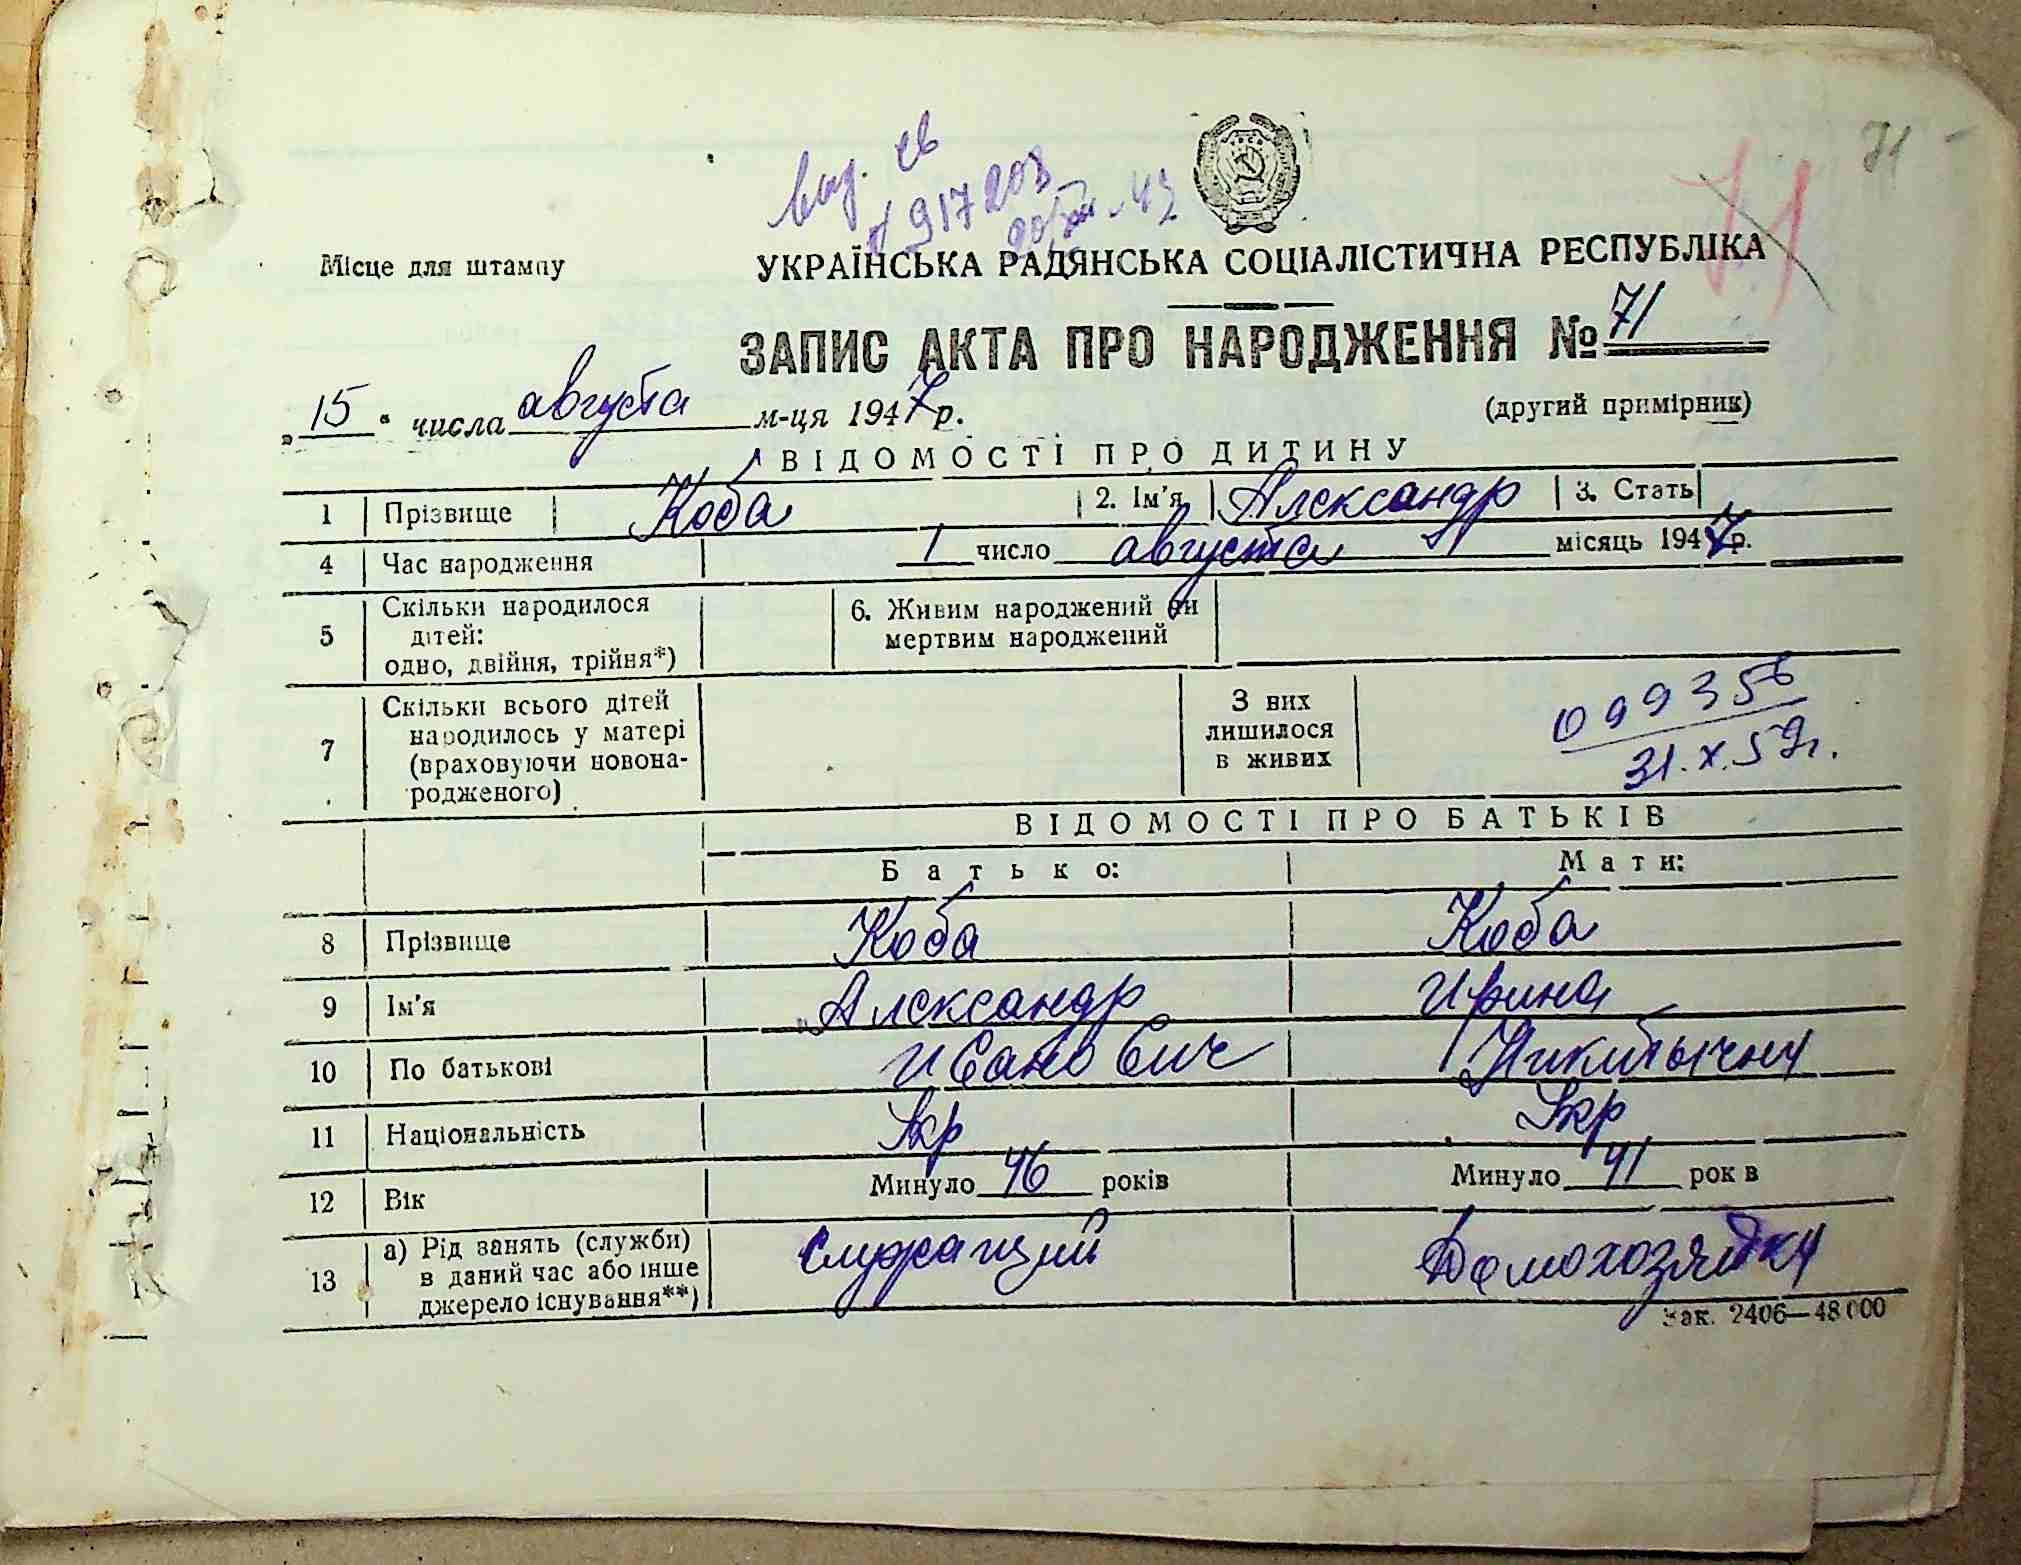 71
71
вид. св
№ 917203
Місце для штампу
УКРАЇНСЬКА РАДЯНСЬКА СОЦІАЛІСТИЧНА РЕСПУБЛІКА
ЗАПИС АКТА ПРО НАРОДЖЕННЯ № 71
„15“ числа августа м-ця 1947 р.
(другий примірник)
ВІДОМОСТІ ПРО ДИТИНУ
1 Прізвище Коба 2. Ім'я Александр 3. Стать
4 Час народження 1 число августа місяць 1947 р.
5 Скільки народилося дітей: одно, двійня, трійня*) 6. Живим народжений чи мертвим народжений
7 Скільки всього дітей народилось у матері (враховуючи новонародженого) З них лишилося в живих
099356
31.X.59г.
ВІДОМОСТІ ПРО БАТЬКІВ
Батько: Мати:
8 Прізвище Коба Коба
9 Ім'я Александр Ирина
10 По батькові Иванович Никитычна
11 Національність Укр Укр
12 Вік Минуло 46 років Минуло 41 рок в
13 а) Рід занять (служби) в даний час або інше джерело існування**) Служащий Домохозяйка
Зак. 2406—48000